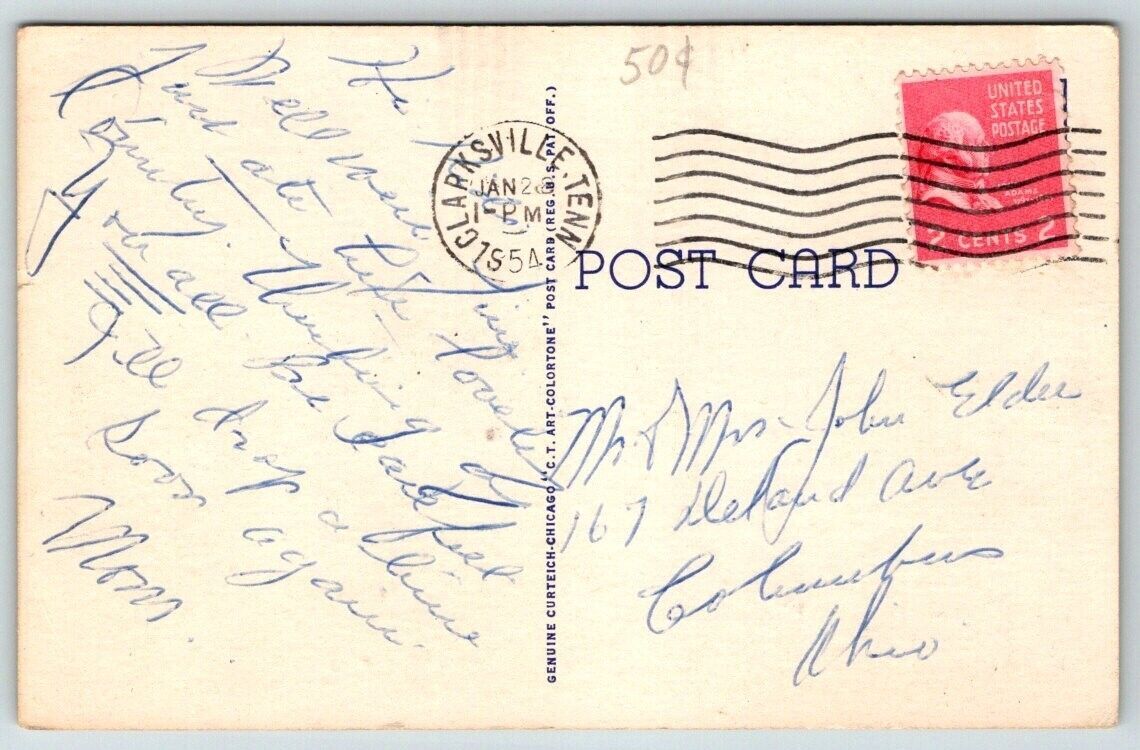 50¢
CLARKSVILLE, TENN
JAN 28
1 - PM
1954
UNITED
STATES
POSTAGE
ADAMS
2 CENTS 2
POST CARD
GENUINE CURTEICH-CHICAGO "C.T. ART-COLORTONE" POST CARD (REG. U.S. PAT. OFF.)
Hi
Well were
Just ate this lovely
Country. Thinking of
You all.
I'll drop a line
soon again.
Mom.
Mr & Mrs - John Elder
167 Deland Ave
Columbus
Ohio